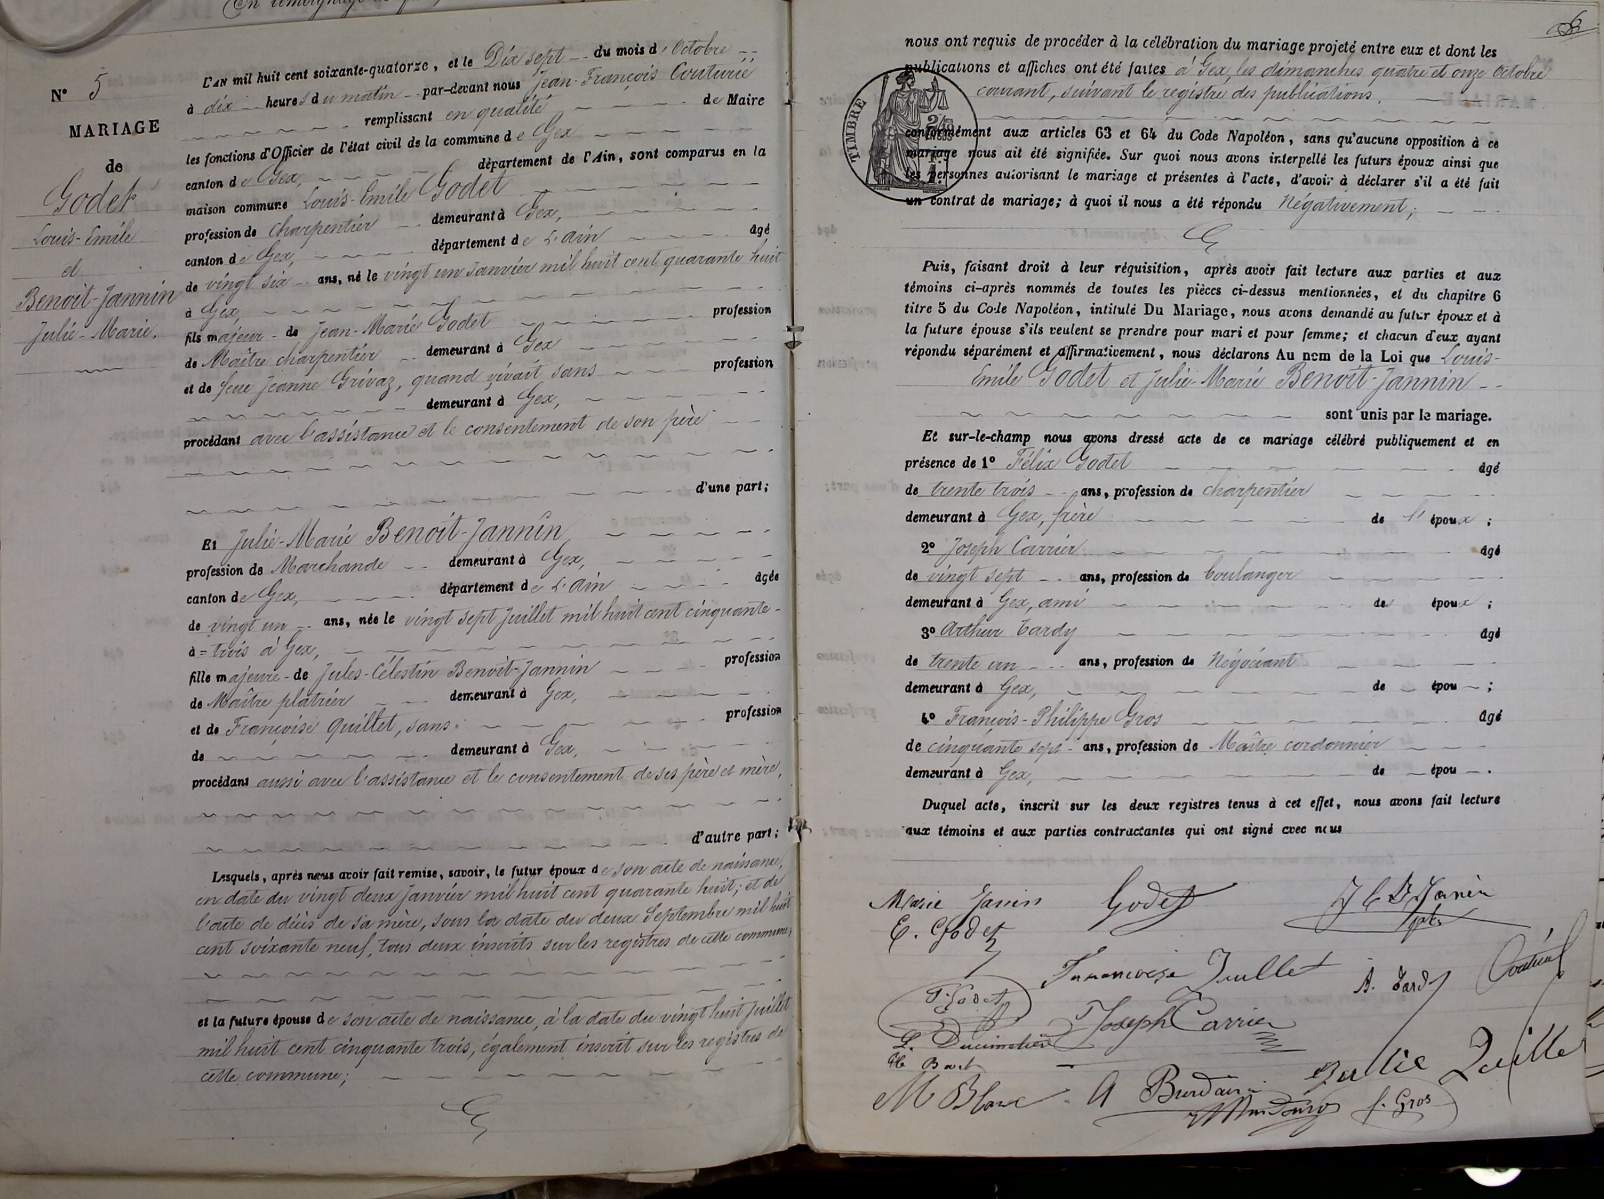 N° 5
MARIAGE
de
Godet
Louis-Emile
et
Benoit-Jannin
Julie-Marie.
L'AN mil huit cent soixante-quatorze, et le Dix sept du mois d'Octobre
à dix heures du matin par-devant nous Jean-François
remplissant en qualité de Maire
les fonctions d'Officier de l'état civil de la commune de Gex
canton de Gex, département de l'Ain, sont comparus en la
maison commune Louis-Emile Godet
profession de charpentier demeurant à Gex,
canton de Gex, département de L'ain âgé
de vingt six ans, né le vingt un Janvier mil huit cent quarante huit
à Gex,
fils majeur de Jean-Marie Godet profession
de Maître charpentier demeurant à Gex
et de feue Jeanne Grivaz, quand vivait sans profession
demeurant à Gex,
procédant avec l'assistance et le consentement de son père
d'une part;
Et Julie-Marie Benoit-Jannin
profession de Marchande demeurant à Gex,
canton de Gex, département de L'ain âgée
de vingt un ans, née le vingt sept Juillet mil huit cent cinquante-
à = trois à Gex,
fille majeure de Jules-Célestin Benoit-Jannin profession
de Maître plâtrier demeurant à Gex,
et de Françoise Quillet, sans profession
de demeurant à Gex,
procédant aussi avec l'assistance et le consentement de ses père et mère,
d'autre part;
Lesquels, après nous avoir fait remise, savoir, le futur époux de son acte de naissance,
en date du vingt deux Janvier mil huit cent quarante huit; et de
l'acte de décès de sa mère, sous la date du deux Septembre mil huit
cent soixante neuf, tous deux inscrits sur les registres de cette commune;
et la future épouse de son acte de naissance, à la date du vingt huit Juillet
mil huit cent cinquante trois, également inscrit sur les registres de
cette commune;
nous ont requis de procéder à la célébration du mariage projeté entre eux et dont les
publications et affiches ont été faites à Gex, les dimanches quatre et onze Octobre
courant, suivant le registre des publications.
TIMBRE
conformément aux articles 63 et 64 du Code Napoléon, sans qu'aucune opposition à ce
mariage nous ait été signifiée. Sur quoi nous avons interpellé les futurs époux ainsi que
les personnes autorisant le mariage et présentes à l'acte, d'avoir à déclarer s'il a été fait
un contrat de mariage; à quoi il nous a été répondu Négativement;
Puis, faisant droit à leur réquisition, après avoir fait lecture aux parties et aux
témoins ci-après nommés de toutes les pièces ci-dessus mentionnées, et du chapitre 6
titre 5 du Code Napoléon, intitulé Du Mariage, nous avons demandé au futur époux et à
la future épouse s'ils veulent se prendre pour mari et pour femme; et chacun d'eux ayant
répondu séparément et affirmativement, nous déclarons Au nom de la Loi que Louis-
Emile Godet et Julie-Marie Benoit-Jannin
sont unis par le mariage.
Et sur-le-champ nous avons dressé acte de ce mariage célébré publiquement et en
présence de 1° Félix Godet âgé
de trente trois ans, profession de charpentier
demeurant à Gex, frère de l'époux;
2° Joseph Carrier âgé
de vingt sept ans, profession de boulanger
demeurant à Gex, ami des époux;
3° Arthur Tardy âgé
de trente un ans, profession de Négociant
demeurant à Gex, de épou ;
4° François-Philippe Gros âgé
de cinquante sept ans, profession de Maître cordonnier
demeurant à Gex, de épou .
Duquel acte, inscrit sur les deux registres tenus à cet effet, nous avons fait lecture
aux témoins et aux parties contractantes qui ont signé avec nous
Marie Janin Godet
E. Godet
A. Tardy
F. Godet
Joseph Carrier
M Blanc
f. Gros